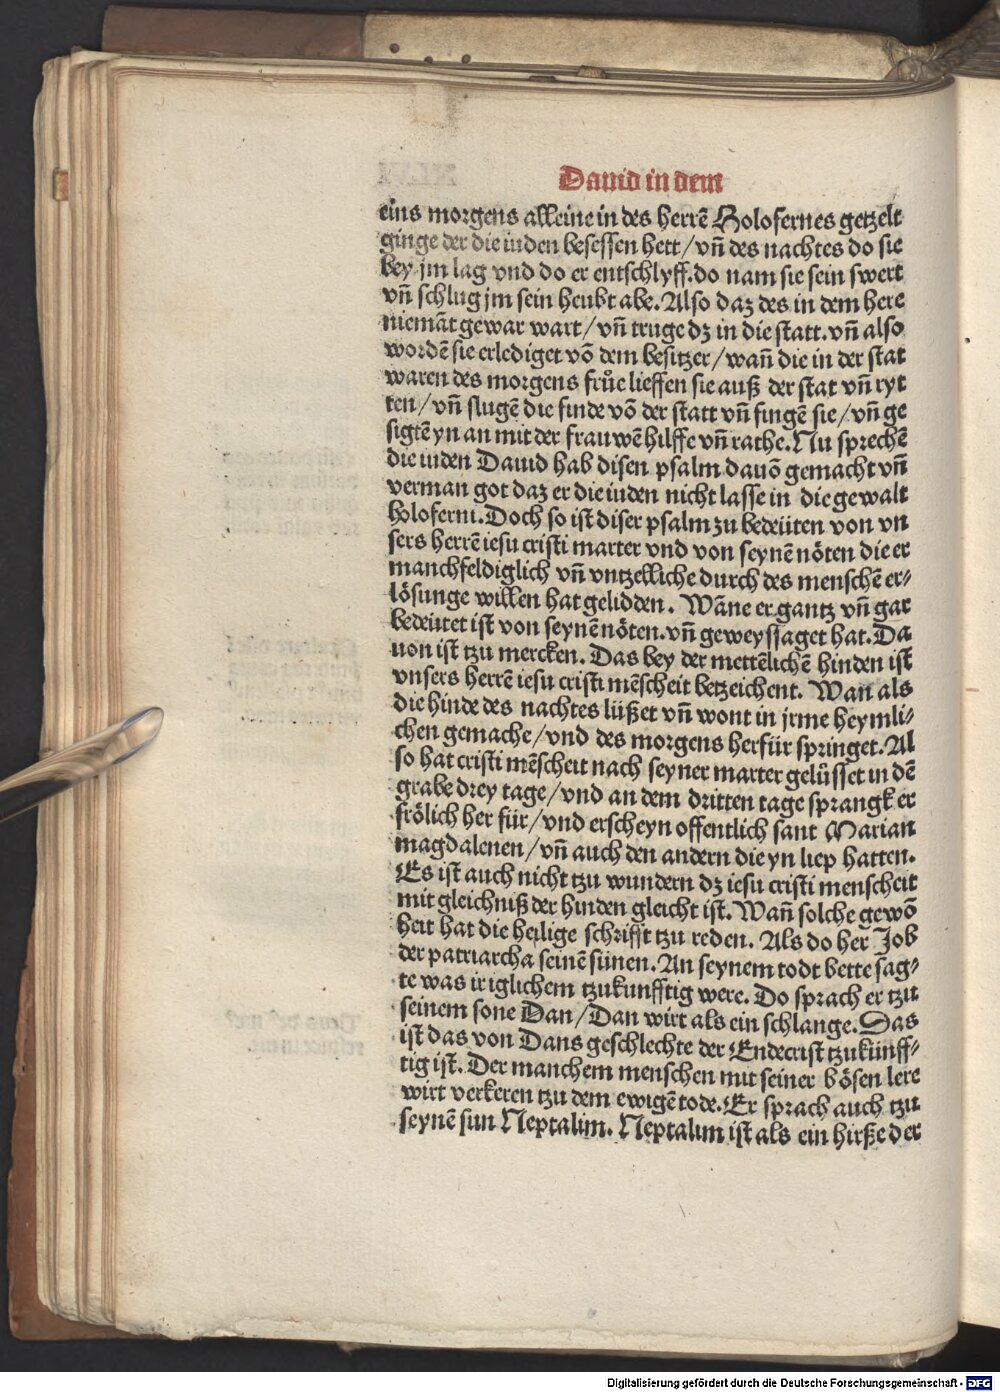 Dauid in dem
eins morgens alleine in des herrē Holofernes getzelt
ginge der die iuden besessen hett/vñ des nachtes do sie
bey jm lag vnd do er entschlyff.do nam sie sein swert
vñ schlug jm sein heubt abe.Also daz des in dem here
niemāt gewar wart/vñ truge dz in die statt.vñ also
wordē sie erlediget vō dem besitzer/wañ die in der stat
waren des morgens frůe lieffen sie auß der stat vñ ryt
ten/vñ slugē die finde vō der statt vñ fingē sie/vñ ge
sigtē yn an mit der frauwē hilffe vñ rathe.Nu sprechē
die iuden Dauid hab disen psalm dauō gemacht vñ
verman got daz er die iuden nicht lasse in die gewalt
holoferni.Doch so ist diser psalm zu bedeüten von vn
sers herrē iesu cristi marter vnd von seynē nöten die er
manchfeldiglich vñ vntzelliche durch des menschē er/
lösunge willen hat gelidden. Wāne er gantz vñ gar
bedeutet ist von seynē nöten.vñ geweyssaget hat.Da
uon ist tzu mercken. Das bey der mettēlichē hinden ist
vnsers herrē iesu cristi mēscheit betzeichent. Wan als
die hinde des nachtes lüßet vñ wont in jrme heymli/
chen gemache/vnd des morgens herfür springet.Al
so hat cristi mēscheit nach seyner marter gelüsset in dē
grabe drey tage/vnd an dem dritten tage sprangk er
frölich her für/vnd erscheyn offentlich sant Marian
magdalenen/vñ auch den andern die yn liep hatten.
Es ist auch nicht tzu wundern dz iesu cristi menscheit
mit gleichniß der hinden gleicht ist.Wañ solche gewō
heit hat die heilige schrifft tzu reden. Als do her Job
der patriarcha seinē sünen.An seynem todt bette sag/
te was ir iglichem tzukunfftig were. Do sprach er tzu
seinem sone Dan/Dan wirt als ein schlange.Das
ist das von Dans geschlechte der Endecrist tzukünff/
tig ist.Der manchem menschen mit seiner bösen lere
wirt verkeren tzu dem ewigē tode.Er sprach auch tzu
seynē sun Neptalim. Neptalim ist als ein hirße der
Digitalisierung gefördert durch die Deutsche Forschungsgemeinschaft - DFG